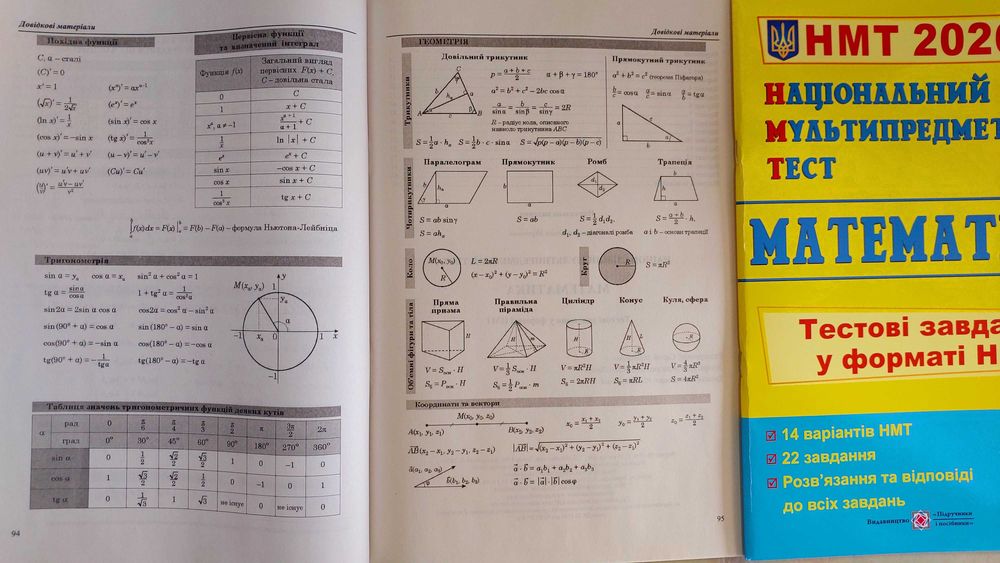 Довідкові матеріали
Похідна функції
C, α – сталі
(C)' = 0
x' = 1 (xⁿ)' = αxᵅ⁻¹
(√x)' = 1/(2√x) (eˣ)' = eˣ
(ln x)' = 1/x (sin x)' = cos x
(cos x)' = –sin x (tg x)' = 1/cos²x
(u + v)' = u' + v' (u – v)' = u' – v'
(uv)' = u'v + uv' (Cu)' = Cu'
(u/v)' = (u'v – uv')/v²
Первісна функції
та визначений інтеграл
Функція f(x) Загальний вигляд первісних F(x) + C, C – довільна стала
0 C
1 x + C
xᵅ, α ≠ –1 xᵅ⁺¹/(α + 1) + C
1/x ln |x| + C
eˣ eˣ + C
sin x –cos x + C
cos x sin x + C
1/cos²x tg x + C
∫ₐᵇ f(x)dx = F(x)|ₐᵇ = F(b) – F(a) – формула Ньютона-Лейбніца
Тригонометрія
sin α = yₐ cos α = xₐ sin²α + cos²α = 1
tg α = sin α/cos α 1 + tg²α = 1/cos²α
sin2α = 2sin α cos α cos2α = cos²α – sin²α
sin(90° + α) = cos α sin(180° – α) = sin α
cos(90° + α) = –sin α cos(180° – α) = –cos α
tg(90° + α) = –1/tgα tg(180° – α) = –tg α
y
1
M(xₐ, yₐ)
yₐ
α
–1 xₐ 0 1 x
–1
Таблиця значень тригонометричних функцій деяких кутів
α рад 0 π/6 π/4 π/3 π/2 π 3π/2 2π
град 0° 30° 45° 60° 90° 180° 270° 360°
sin α 0 1/2 √2/2 √3/2 1 0 –1 0
cos α 1 √3/2 √2/2 1/2 0 –1 0 1
tg α 0 1/√3 1 √3 не існує 0 не існує 0
94
Довідкові матеріали
ГЕОМЕТРІЯ
Трикутники
Довільний трикутник
C
b hₐ a
A c B
p = (a + b + c)/2 α + β + γ = 180°
a² = b² + c² – 2bc cos α
a/sin α = b/sin β = c/sin γ = 2R
R – радіус кола, описаного
навколо трикутника ABC
S = 1/2 a · hₐ S = 1/2 b · c · sin α S = √(p(p – a)(p – b)(p – c))
Прямокутний трикутник
a² + b² = c² (теорема Піфагора)
b/c = cosα a/c = sinα a/b = tgα
Чотирикутники
Паралелограм Прямокутник Ромб Трапеція
S = ab sinγ S = ab S = 1/2 d₁d₂, S = (a + b)/2 · h,
S = ahₐ d₁, d₂ – діагоналі ромба a і b – основи трапеції
Коло
M(x₀, y₀)
R
L = 2πR
(x – x₀)² + (y – y₀)² = R²
Круг
R
S = πR²
Об'ємні фігури та тіла
Пряма призма Правильна піраміда Циліндр Конус Куля, сфера
V = Sосн · H V = 1/3 Sосн · H V = πR²H V = 1/3 πR²H V = 4/3 πR³
Sб = Pосн · H Sб = 1/2 Pосн · m Sб = 2πRH Sб = πRL S = 4πR²
Координати та вектори
M(x₀, y₀, z₀)
A(x₁, y₁, z₁) B(x₂, y₂, z₂)
x₀ = (x₁ + x₂)/2 y₀ = (y₁ + y₂)/2 z₀ = (z₁ + z₂)/2
AB(x₂ – x₁, y₂ – y₁, z₂ – z₁) |AB| = √((x₂ – x₁)² + (y₂ – y₁)² + (z₂ – z₁)²)
a(a₁, a₂, a₃)
φ b(b₁, b₂, b₃)
a · b = a₁b₁ + a₂b₂ + a₃b₃
a · b = |a| · |b| cosφ
95
НМТ 2026
НАЦІОНАЛЬНИЙ
МУЛЬТИПРЕДМЕТ
ТЕСТ
МАТЕМАТ
Тестові завда
у форматі Н
14 варіантів НМТ
22 завдання
Розв'язання та відповіді
до всіх завдань
Видавництво «Підручники
і посібники»